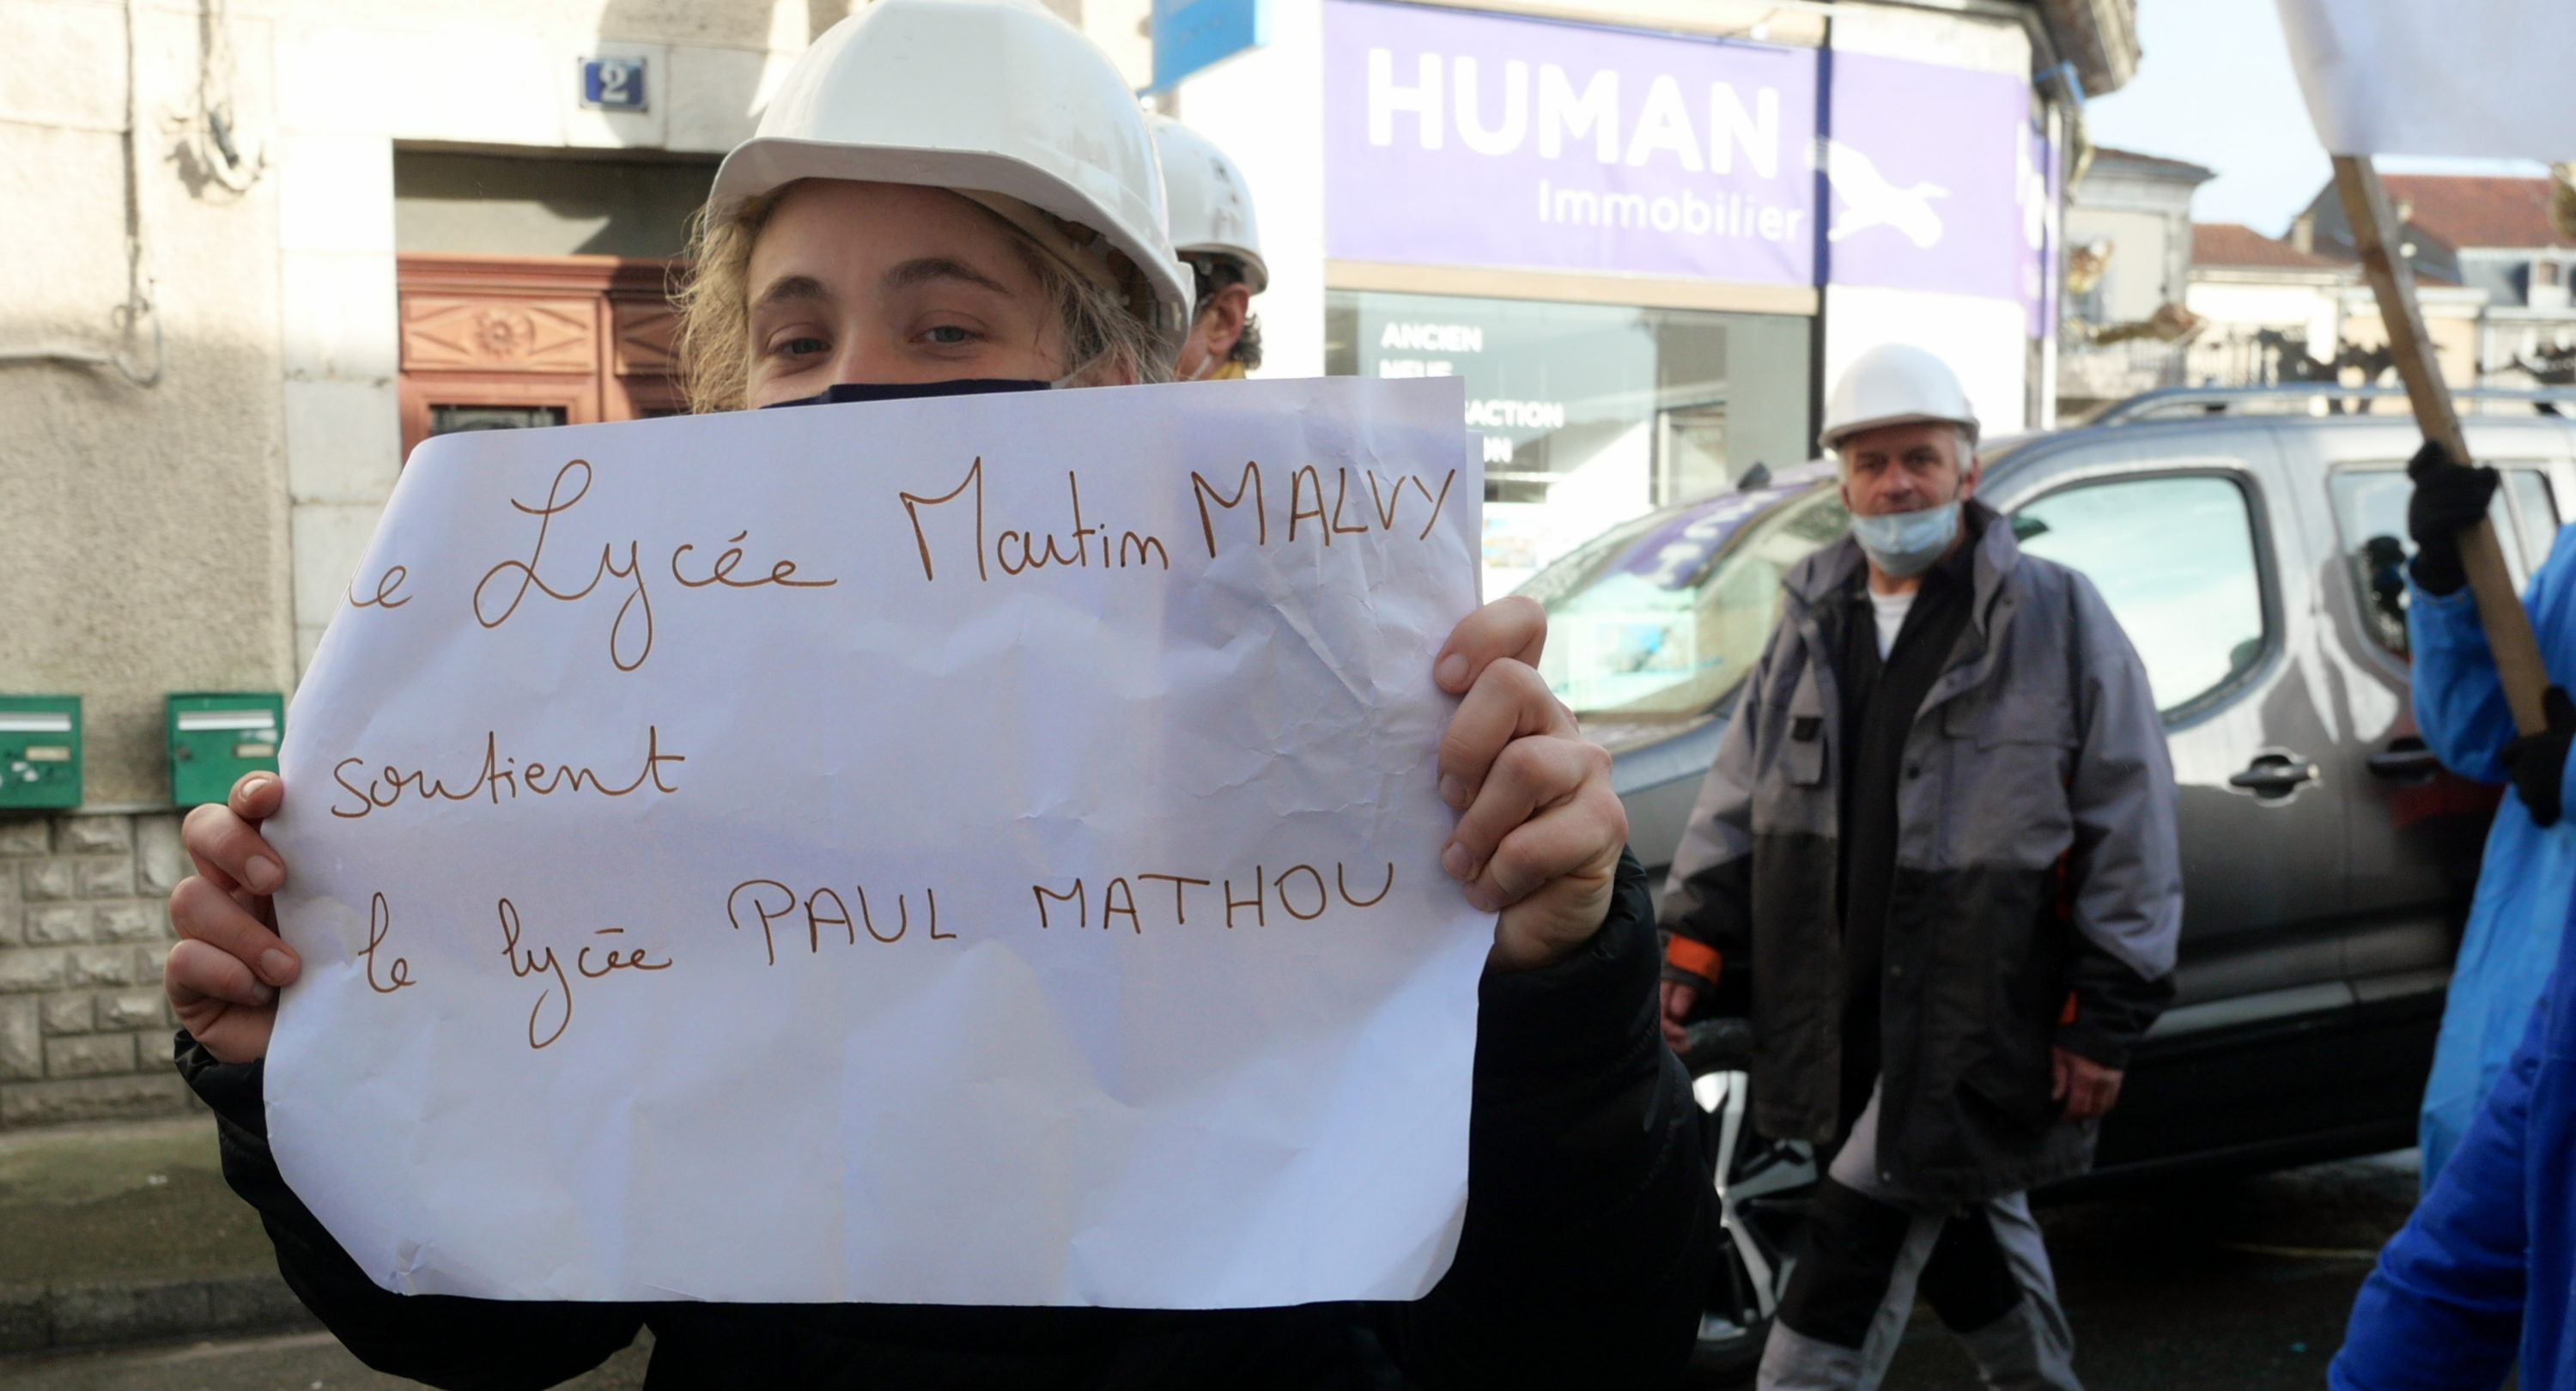 2
HUMAN
Immobilier
ANCIEN
NEUF
le Lycée Martin MALVY
soutient
le lycée PAUL MATHOU